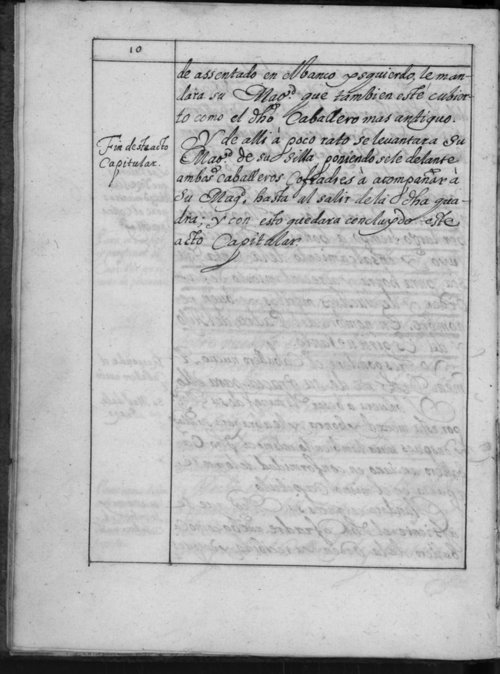 10
de assentado en el banco ysquierdo, le man
dara su Mag.d que tambien este cubier
to como el dho Caballero mas antiguo.
Fin deste acto
Capitular.
Y de alli à poco rato se levantara Su
Mag.d de su Silla poniendosele delante
ambos caballeros Coffadres à acompañar à
Su Mag.d hasta al salir de la dha qua
dra; y con esto quedara concluydo este
acto Capitular